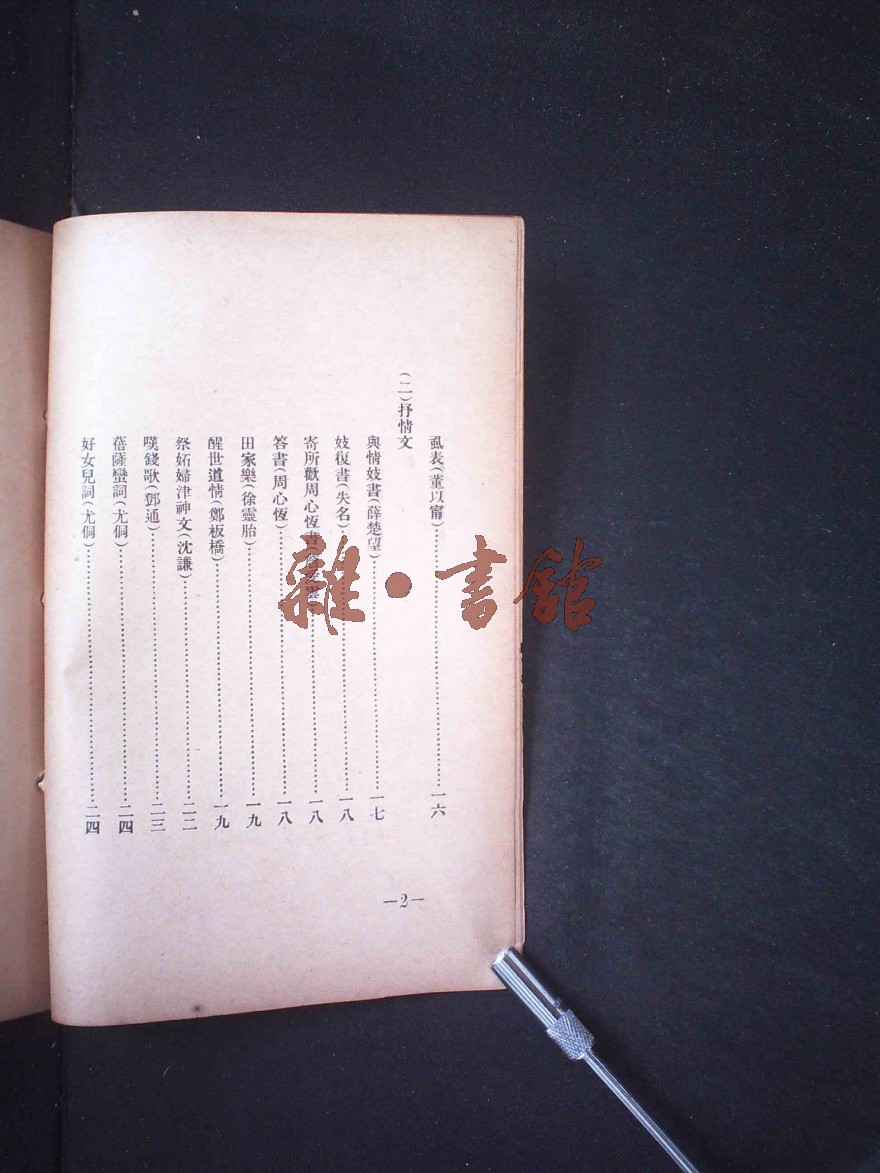 虱表(董以甯)……一六
(二)抒情文
與情妓書(薛楚望)……一七
妓復書(失名)……一八
寄所歡周心恆書……一八
答書(周心恆)……一八
田家樂(徐靈胎)……一九
醒世道情(鄭板橋)……一九
祭妬婦津神文(沈謙)……二二
嘆錢歌(鄧通)……二三
菩薩蠻詞(尤侗)……二四
好女兒詞(尤侗)……二四
—2—
雜·書館